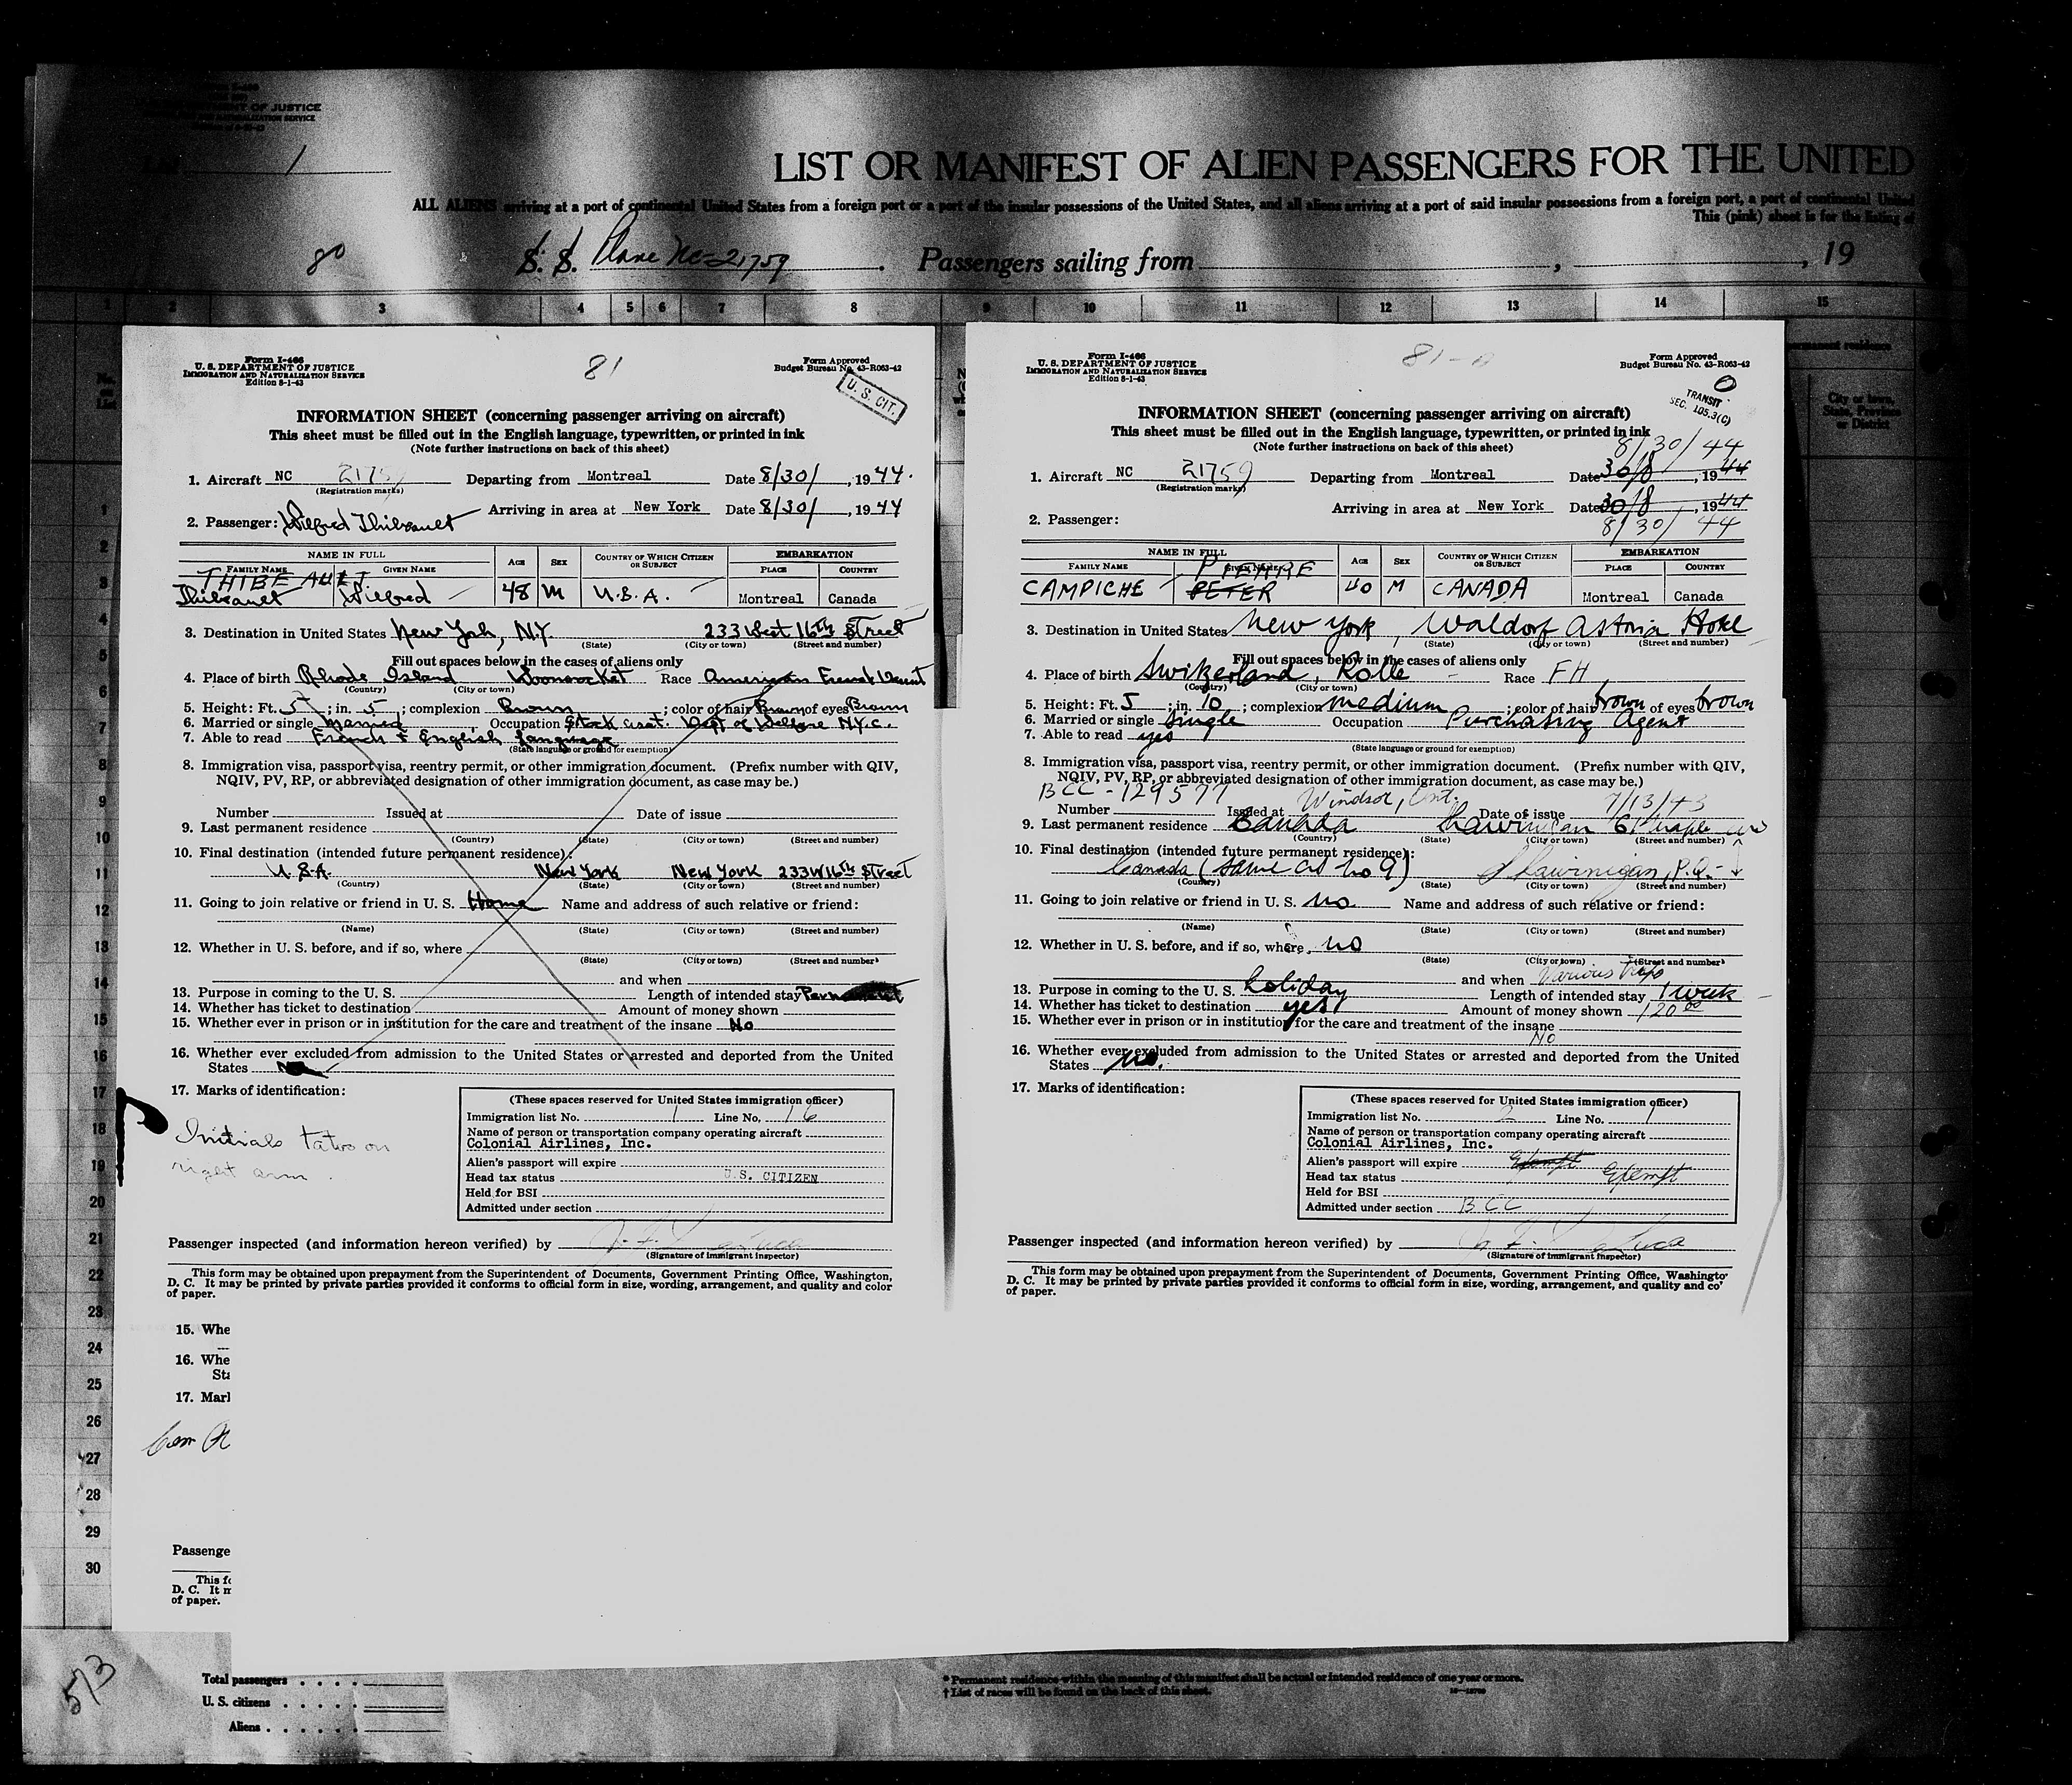 DEPARTMENT OF JUSTICE
NATURALIZATION SERVICE
1
LIST OR MANIFEST OF ALIEN PASSENGERS FOR THE UNITED
ALL ALIENS arriving at a port of continental United States from a foreign port or a port of the insular possessions of the United States, and all aliens arriving at a port of said insular possessions from a foreign port, a port of continental United
This (pink) sheet is for the listing of
80 S. S. Plane NC-21759. Passengers sailing from , , 19
1 2 3 4 5 6 7 8 9 10 11 12 13 14 15
permanent residence
No. on List
City or town, State, Province or District
Form I-466
U. S. DEPARTMENT OF JUSTICE
IMMIGRATION AND NATURALIZATION SERVICE
Edition 8-1-43
81
Form Approved
Budget Bureau No. 43-R063-42
U. S. CIT.
INFORMATION SHEET (concerning passenger arriving on aircraft)
This sheet must be filled out in the English language, typewritten, or printed in ink
(Note further instructions on back of this sheet)
1. Aircraft NC 21759 Departing from Montreal Date 8/30/, 1944.
(Registration marks)
Arriving in area at New York Date 8/30/, 1944
2. Passenger: Wilfred Thibeault
NAME IN FULL AGE SEX COUNTRY OF WHICH CITIZEN OR SUBJECT EMBARKATION
FAMILY NAME GIVEN NAME PLACE COUNTRY
THIBEAULT
Thibeault Wilfred 48 M U.S.A. Montreal Canada
3. Destination in United States New York, N.Y. 233 West 16th Street
(State) (City or town) (Street and number)
Fill out spaces below in the cases of aliens only
4. Place of birth Rhode Island Woonsocket Race American French Descent
(Country) (City or town)
5. Height: Ft. 5; in. 5; complexion Brown; color of hair Brown of eyes Brown
6. Married or single Married Occupation Stock asst. Dept of Welfare N.Y.C.
7. Able to read French & English language
(State language or ground for exemption)
8. Immigration visa, passport visa, reentry permit, or other immigration document. (Prefix number with QIV,
NQIV, PV, RP, or abbreviated designation of other immigration document, as case may be.)
Number Issued at Date of issue
9. Last permanent residence
(Country) (State) (City or town) (Street and number)
10. Final destination (intended future permanent residence):
U.S.A. New York New York 233 W 16th Street
(Country) (State) (City or town) (Street and number)
11. Going to join relative or friend in U. S. Home Name and address of such relative or friend:
(Name) (State) (City or town) (Street and number)
12. Whether in U. S. before, and if so, where
(State) (City or town) (Street and number)
and when
13. Purpose in coming to the U. S. Length of intended stay Permanent
14. Whether has ticket to destination Amount of money shown
15. Whether ever in prison or in institution for the care and treatment of the insane No
16. Whether ever excluded from admission to the United States or arrested and deported from the United
States No
17. Marks of identification:
Initials tatoo on
right arm.
(These spaces reserved for United States immigration officer)
Immigration list No. 1 Line No. 16
Name of person or transportation company operating aircraft
Colonial Airlines, Inc.
Alien's passport will expire
Head tax status U.S. CITIZEN
Held for BSI
Admitted under section
Passenger inspected (and information hereon verified) by
(Signature of Immigrant Inspector)
This form may be obtained upon prepayment from the Superintendent of Documents, Government Printing Office, Washington,
D. C. It may be printed by private parties provided it conforms to official form in size, wording, arrangement, and quality and color
of paper.
Form I-466
U. S. DEPARTMENT OF JUSTICE
IMMIGRATION AND NATURALIZATION SERVICE
Edition 8-1-43
81-A
Form Approved
Budget Bureau No. 43-R063-42
TRANSIT
SEC. 105.3(C)
INFORMATION SHEET (concerning passenger arriving on aircraft)
This sheet must be filled out in the English language, typewritten, or printed in ink
(Note further instructions on back of this sheet)
8/30/44
1. Aircraft NC 21759 Departing from Montreal Date 30/8, 1944
(Registration marks)
Arriving in area at New York Date 30/8, 1944
2. Passenger: 8/30/44
NAME IN FULL AGE SEX COUNTRY OF WHICH CITIZEN OR SUBJECT EMBARKATION
FAMILY NAME GIVEN NAME PLACE COUNTRY
PIERRE
CAMPICHE PETER 40 M CANADA Montreal Canada
3. Destination in United States New York, Waldorf Astoria Hotel
(State) (City or town) (Street and number)
Fill out spaces below in the cases of aliens only
4. Place of birth Switzerland, Rolle Race FH
(Country) (City or town)
5. Height: Ft. 5; in. 10; complexion medium; color of hair brown of eyes brown
6. Married or single Single Occupation Purchasing Agent
7. Able to read yes
(State language or ground for exemption)
8. Immigration visa, passport visa, reentry permit, or other immigration document. (Prefix number with QIV,
NQIV, PV, RP, or abbreviated designation of other immigration document, as case may be.)
BCC-129577 Windsor, Ont. 7/13/43
Number Issued at Date of issue
9. Last permanent residence Canada Shawinigan 61 Maple
(Country) (State) (City or town) (Street and number)
10. Final destination (intended future permanent residence):
Canada (same as no 9) Shawinigan, P.Q.
(Country) (State) (City or town) (Street and number)
11. Going to join relative or friend in U. S. no Name and address of such relative or friend:
(Name) (State) (City or town) (Street and number)
12. Whether in U. S. before, and if so, where no
(State) (City or town) (Street and number)
and when Various trips
13. Purpose in coming to the U. S. holiday Length of intended stay 1 week
14. Whether has ticket to destination yes Amount of money shown 120.00
15. Whether ever in prison or in institution for the care and treatment of the insane
No
16. Whether ever excluded from admission to the United States or arrested and deported from the United
States no.
17. Marks of identification:
(These spaces reserved for United States immigration officer)
Immigration list No. 2 Line No. 1
Name of person or transportation company operating aircraft
Colonial Airlines, Inc.
Alien's passport will expire Exempt
Head tax status Exempt
Held for BSI
Admitted under section BCC
Passenger inspected (and information hereon verified) by
(Signature of Immigrant Inspector)
This form may be obtained upon prepayment from the Superintendent of Documents, Government Printing Office, Washingto
D. C. It may be printed by private parties provided it conforms to official form in size, wording, arrangement, and quality and co
of paper.
1
2
3
4
5
6
7
8
9
10
11
12
13
14
15
16
17
18
19
20
21
22
23
24
25
26
27
28
29
30
15. Whe
16. Whe
Sta
17. Marl
Passenge
This fo
D. C. It m
of paper.
573
Total passengers
U. S. citizens
Aliens
* Permanent residence within the meaning of this manifest shall be actual or intended residence of one year or more.
† List of races will be found on the back of this sheet.